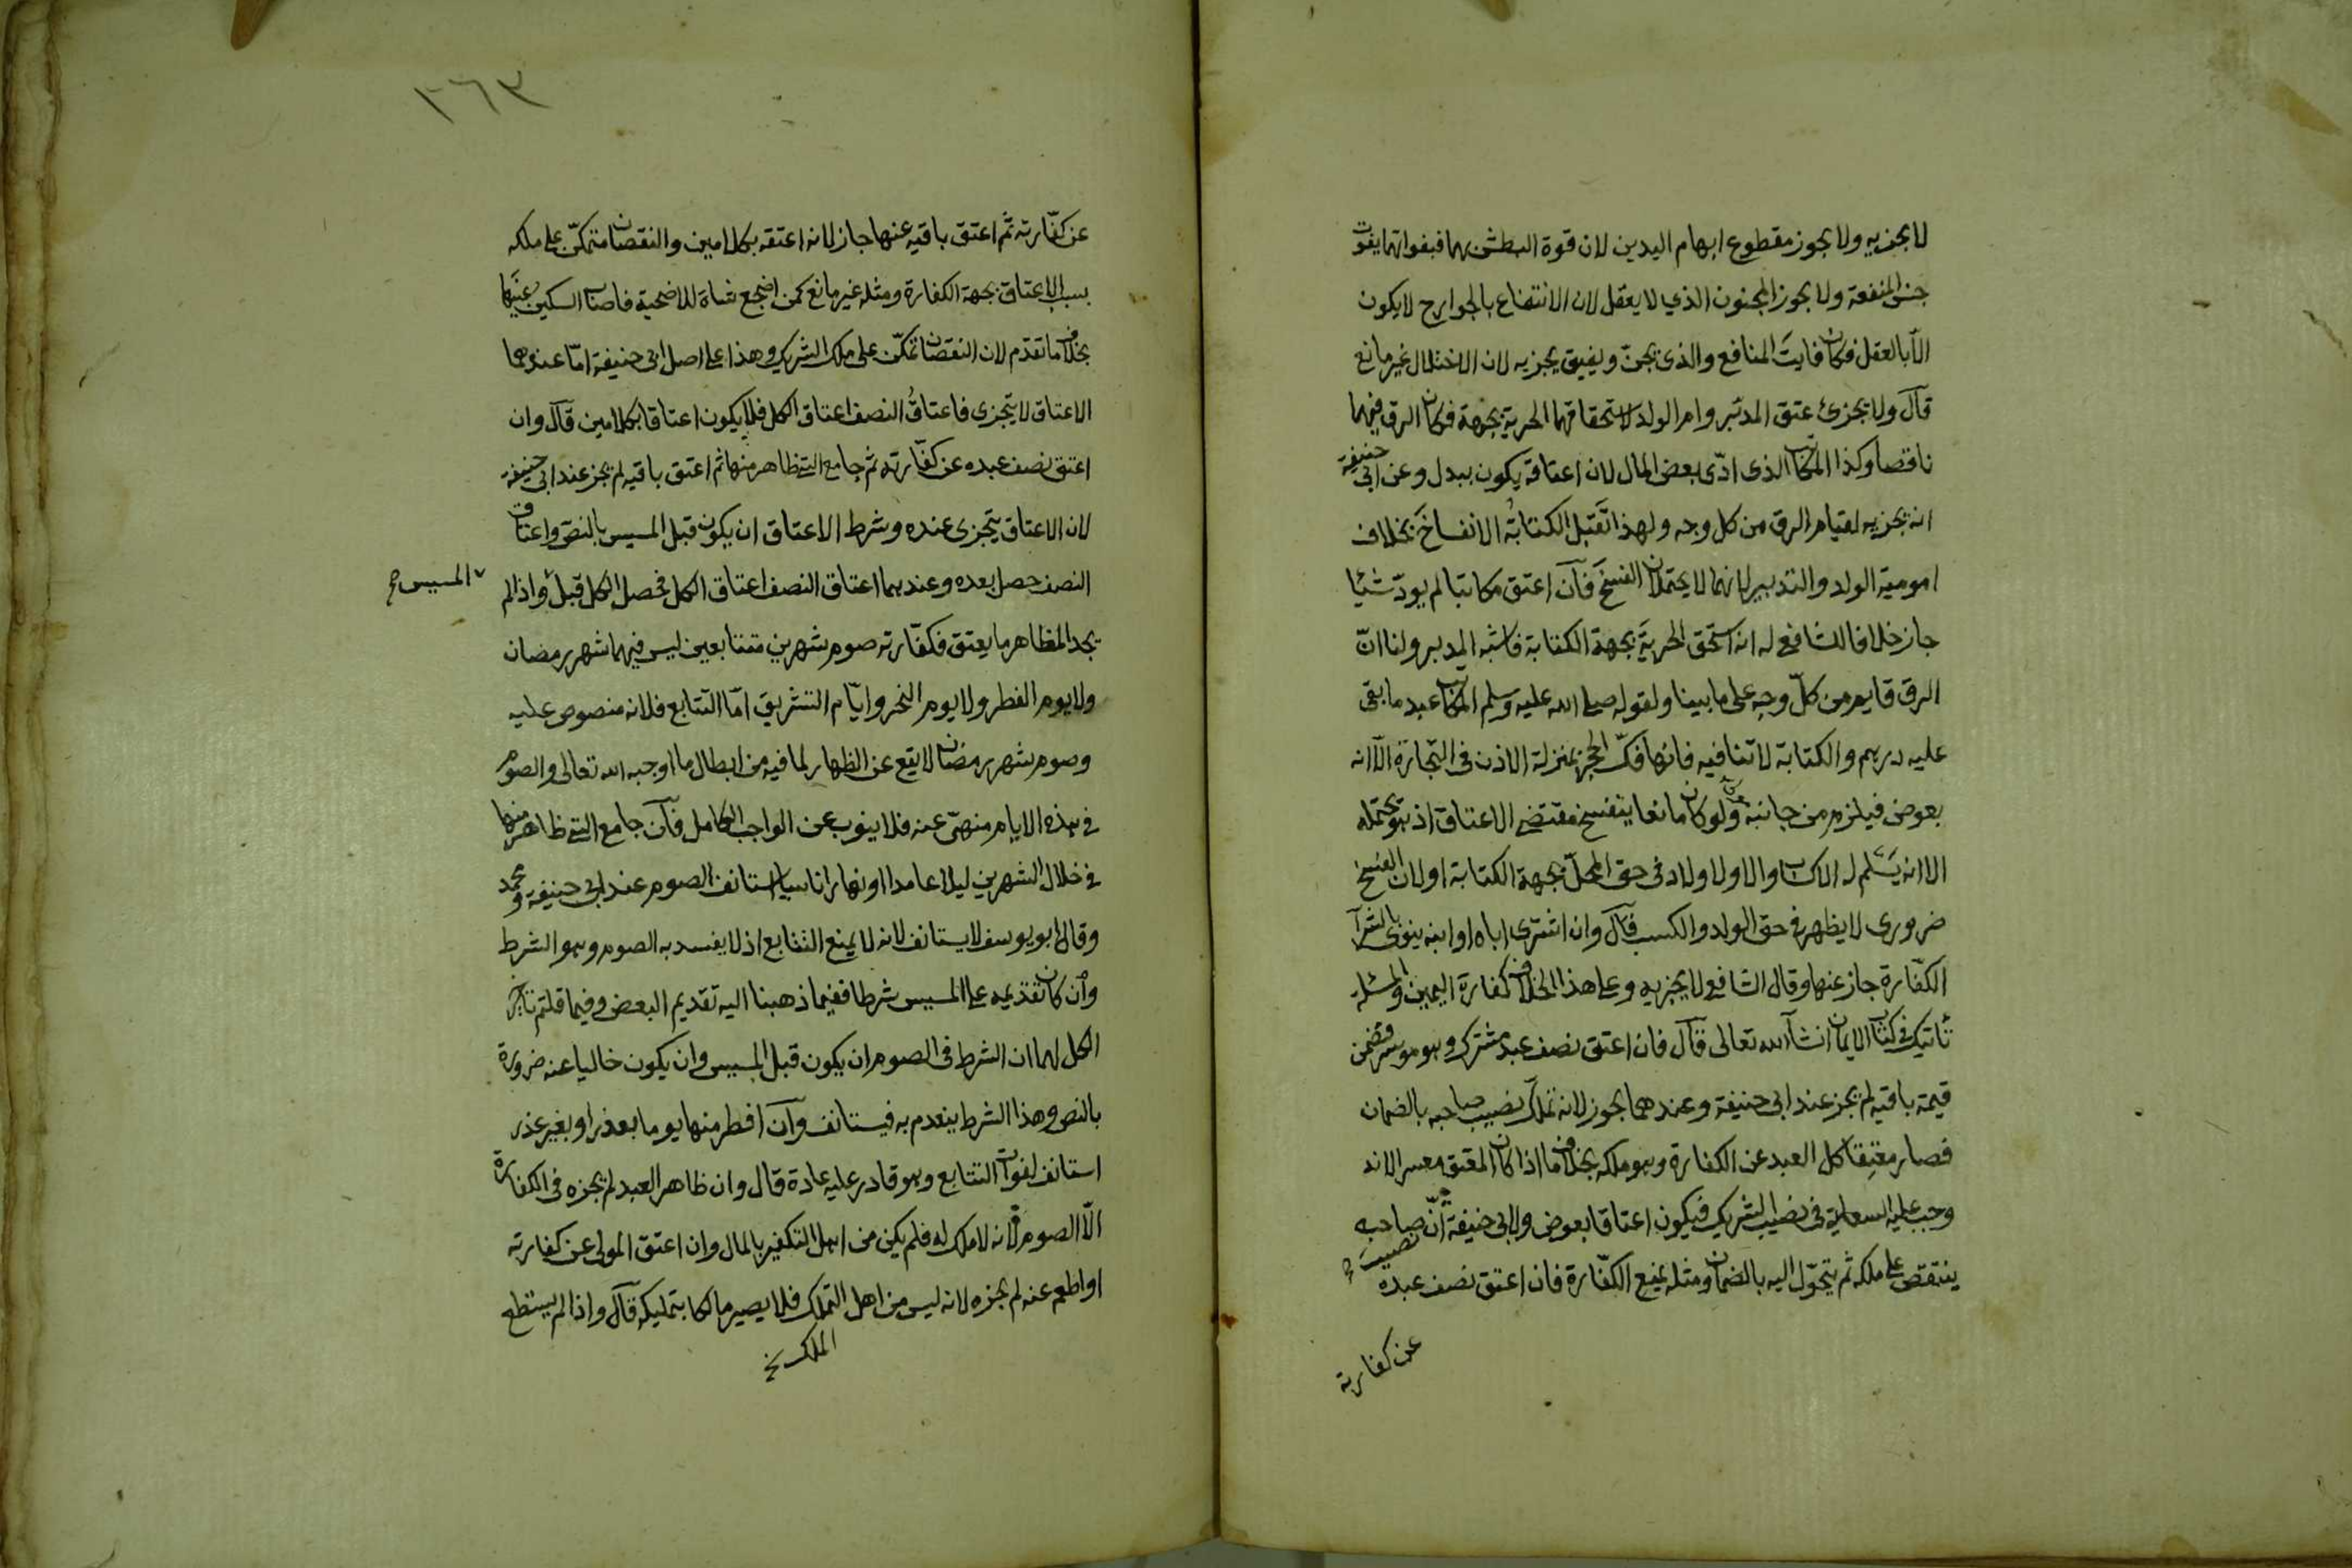 لا يجزيه ولا يجوز مقطوع ابهام اليدين لان قوة البطش بهما فبفواتهما يفوت
جنس المنفعة ولا يجوز المجنون الذي لا يعقل لان الانتفاع بالجوارح لا يكون
الا بالعقل فكان فايت المنافع والذي يجن ويفيق يجزيه لان الاختلال غير مانع
قال ولا يجزئ عتق المدبر وام الولد لاستحقاقهما الحرية بجهة فكان الرق فيهما
ناقصا وكذا المكاتب الذى ادّى بعض المال لان اعتاقه يكون ببدل وعن ابى حنيفة
انه يجزيه لقيام الرق من كل وجه ولهذا تقبل الكتابة الانفساخ بخلاف
امومية الولد والتدبير لانهما لا يحتملان الفسخ فان اعتق مكاتبا لم يودّ شيئا
جاز خلافا للشافعي له انه استحق الحرية بجهة الكتابة فاشبه المدبر ولنا انّ
الرق قايم من كلّ وجه على ما بينا ولقوله صلى الله عليه وسلم المكاتب عبد ما بقى
عليه درهم والكتابة لا تنافيه فانها فكّ الحجر بمنزلة الاذن فى التجارة الّا انه
بعوض فيلزم من جانبه ولو كان مانعا ينفسخ مقتضى الاعتاق اذ هو يحتمله
الا انه يسلم له الاكساب والاولاد لان العتق فى حق المحلّ بجهة الكتابة او لان الفسخ
ضرورى لا يظهر فى حق الولد والكسب قال وان اشترى اباه او ابنه ينوى بالشرآ
الكفّارة جاز عنها وقال الشافعي لا يجزيه وعلى هذا الخلاف كفارة اليمين والمسئلة
تاتيك فى كتاب الايمان انشآ الله تعالى قال فان اعتق نصف عبد مشترك وهو موسر فضمن
قيمة باقيه لم يجز عند ابى حنيفة وعندهما يجوز لانه تملك نصيب صاحبه بالضمان
فصار معتقا كل العبد عن الكفارة وهو ملكه بخلاف ما اذا كان المعتق معسرا لانه
وجب عليه السعاية فى نصيب الشريك فيكون اعتاقا بعوض ولابى حنيفة انّ نصيب صاحبه
ينتقص على ملكه ثم يتحوّل اليه بالضمان ومثله يمنع الكفّارة فان اعتق نصف عبده
عن كفارته
٢٦٣
عن كفّارته ثم اعتق باقيه عنها جاز لانه اعتقه بكلامين والنقصان متمكّن على ملكه
بسبب الاعتاق بجهة الكفارة ومثله غير مانع كمن اضجع شاة للاضحية فاصاب السكين عينها
بخلاف ما تقدم لان النقصان تمكّن على ملك الشريك وهذا على اصل ابى حنيفة امّا عندهما
الاعتاق لا يتجزى فاعتاق النصف اعتاق الكل فلا يكون اعتاقا بكلامين قال وان
اعتق نصف عبده عن كفّارته ثم جامع التى ظاهر منها ثم اعتق باقيه لم يجز عند ابى حنيفة
لان الاعتاق يتجزى عنده وشرط الاعتاق ان يكون قبل المسيس بالنصّ واعتاق
النصف حصل بعده وعندهما اعتاق النصف اعتاق الكل فحصل الكل قبل المسيس واذا لم
يجد المظاهر ما يعتق فكفّارته صوم شهرين متتابعين ليس فيهما شهر رمضان
ولا يوم الفطر ولا يوم النحر وايّام التشريق امّا التتابع فلانه منصوص عليه
وصوم شهر رمضان لا يقع عن الظهار لما فيه من ابطال ما اوجبه الله تعالى والصوم
فى هذه الايام منهىّ عنه فلا ينوب عن الواجب الكامل فان جامع التى ظاهر منها
فى خلال الشهرين ليلا عامدا او نهارا ناسيا استانف الصوم عند ابى حنيفة ومحمد
وقال ابو يوسف لا يستانف لانه لا يمنع التتابع اذ لا يفسد به الصوم وهو الشرط
وان كان تقديمه على المسيس شرطا ففيما ذهبنا اليه تقديم البعض وفيما قلتم تاخير
الكل لهما ان الشرط فى الصوم ان يكون قبل المسيس وان يكون خاليا عنه ضرورة
بالنص وهذا الشرط ينعدم به فيستانف وان افطر منها يوما بعذر او بغير عذر
استانف لفوات التتابع وهو قادر عليه عادة قال وان ظاهر العبد لم يجزه فى الكفارة
الّا الصوم لانه لا ملك له فلم يكن من اهل التكفير بالمال وان اعتق المولى عن كفارته
او اطعم عنه لم يجزه لانه ليس من اهل التملك فلا يصير مالكا بتمليكه قال واذا لم يستطع
الملك خ